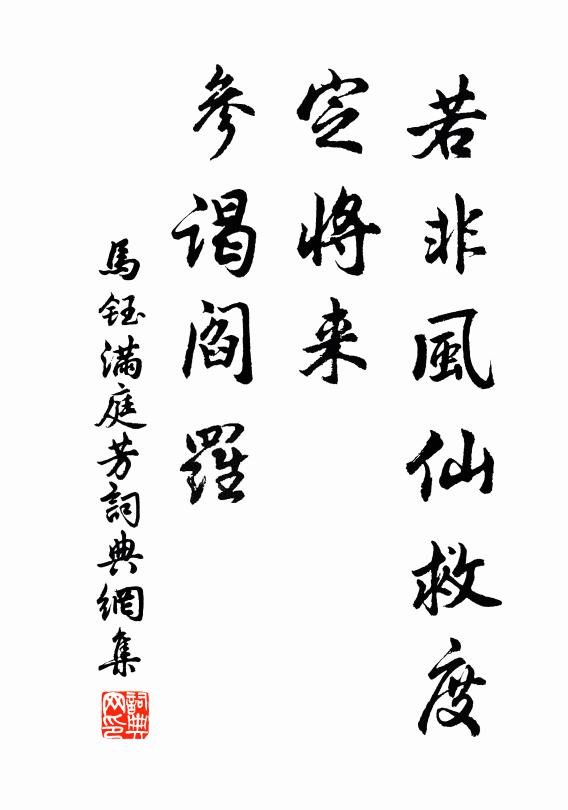 若非風仙救度
定將来
參謁閻羅
馬鈺滿庭芳詞典網集
詞典网印